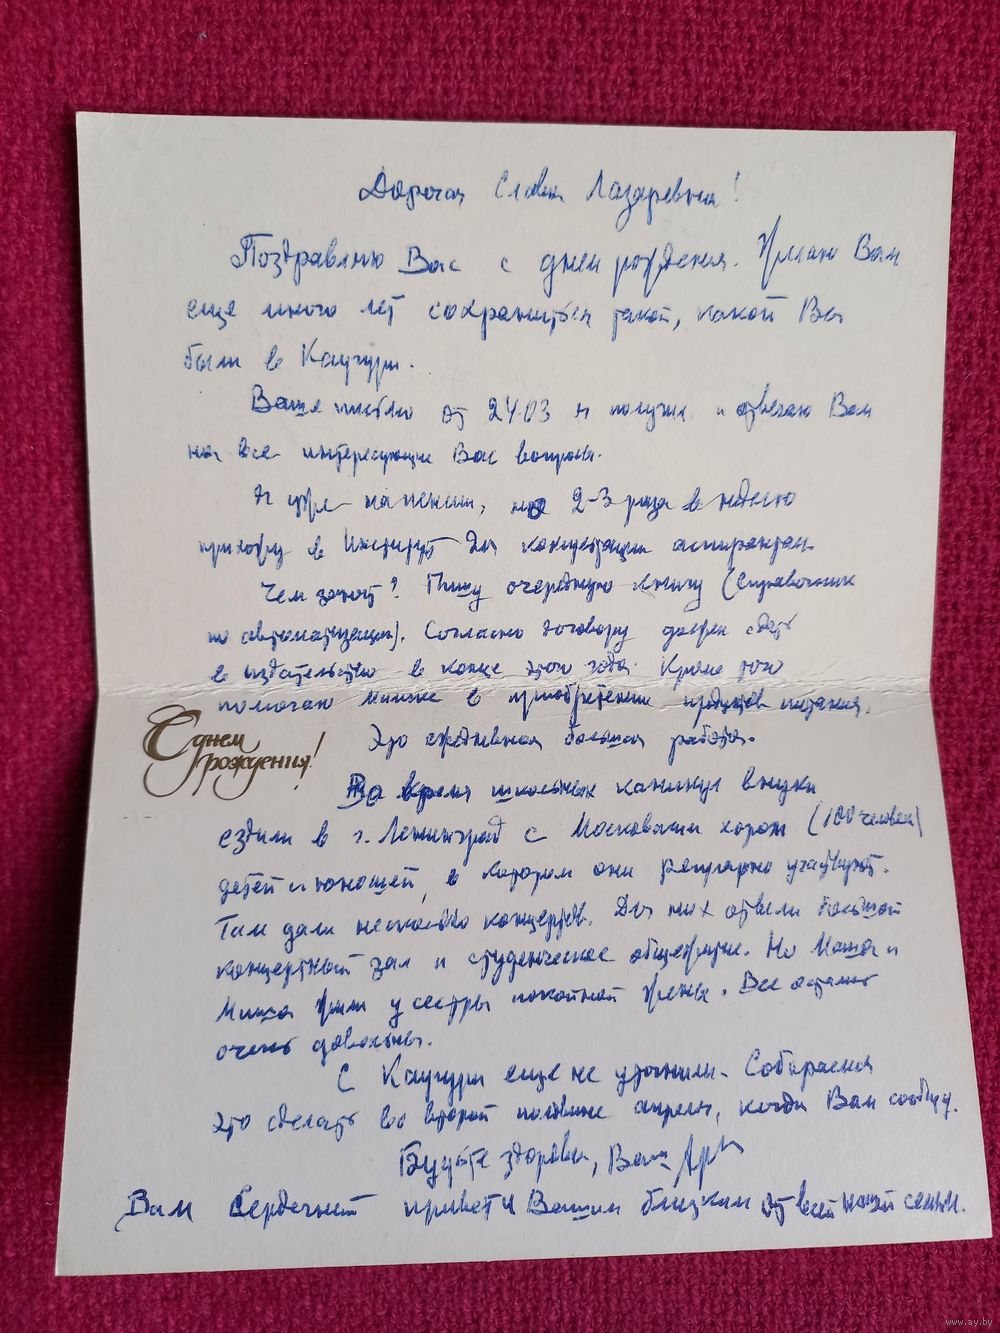 Дорогая Слава Лазаревна!
Поздравляю Вас с днем рождения. Желаю Вам
еще много лет сохраниться такой, какой Вы
были в Каугури.
Ваше письмо от 24.03 я получил и отвечаю Вам
на все интересующие Вас вопросы.
Я уже на пенсии, но 2-3 раза в неделю
прихожу в Институт для консультации аспирантам.
Чем занят? Пишу очередную книгу (Справочник
по автоматизации). Согласно договору должен сдать
в издательство в конце этого года. Кроме того
помогаю в приобретении продуктов питания.
Это ежедневная большая работа.
С днем
рождения!
Во время школьных каникул внуки
ездили в г. Ленинград с Московским хором (100 человек)
детей и юношей, в котором они регулярно участвуют.
Там дали несколько концертов. Для них отвели большой
концертный зал и студенческое общежитие. Но Маша и
Миша жили у сестры покойной жены. Все остались
очень довольны.
С Каугури еще не уточнили. Собираемся
это сделать во второй половине апреля, когда Вам сообщу.
Будьте здоровы, Ваш
Вам Сердечный привет и Вашим близким от всей нашей семьи.
www.ay.by